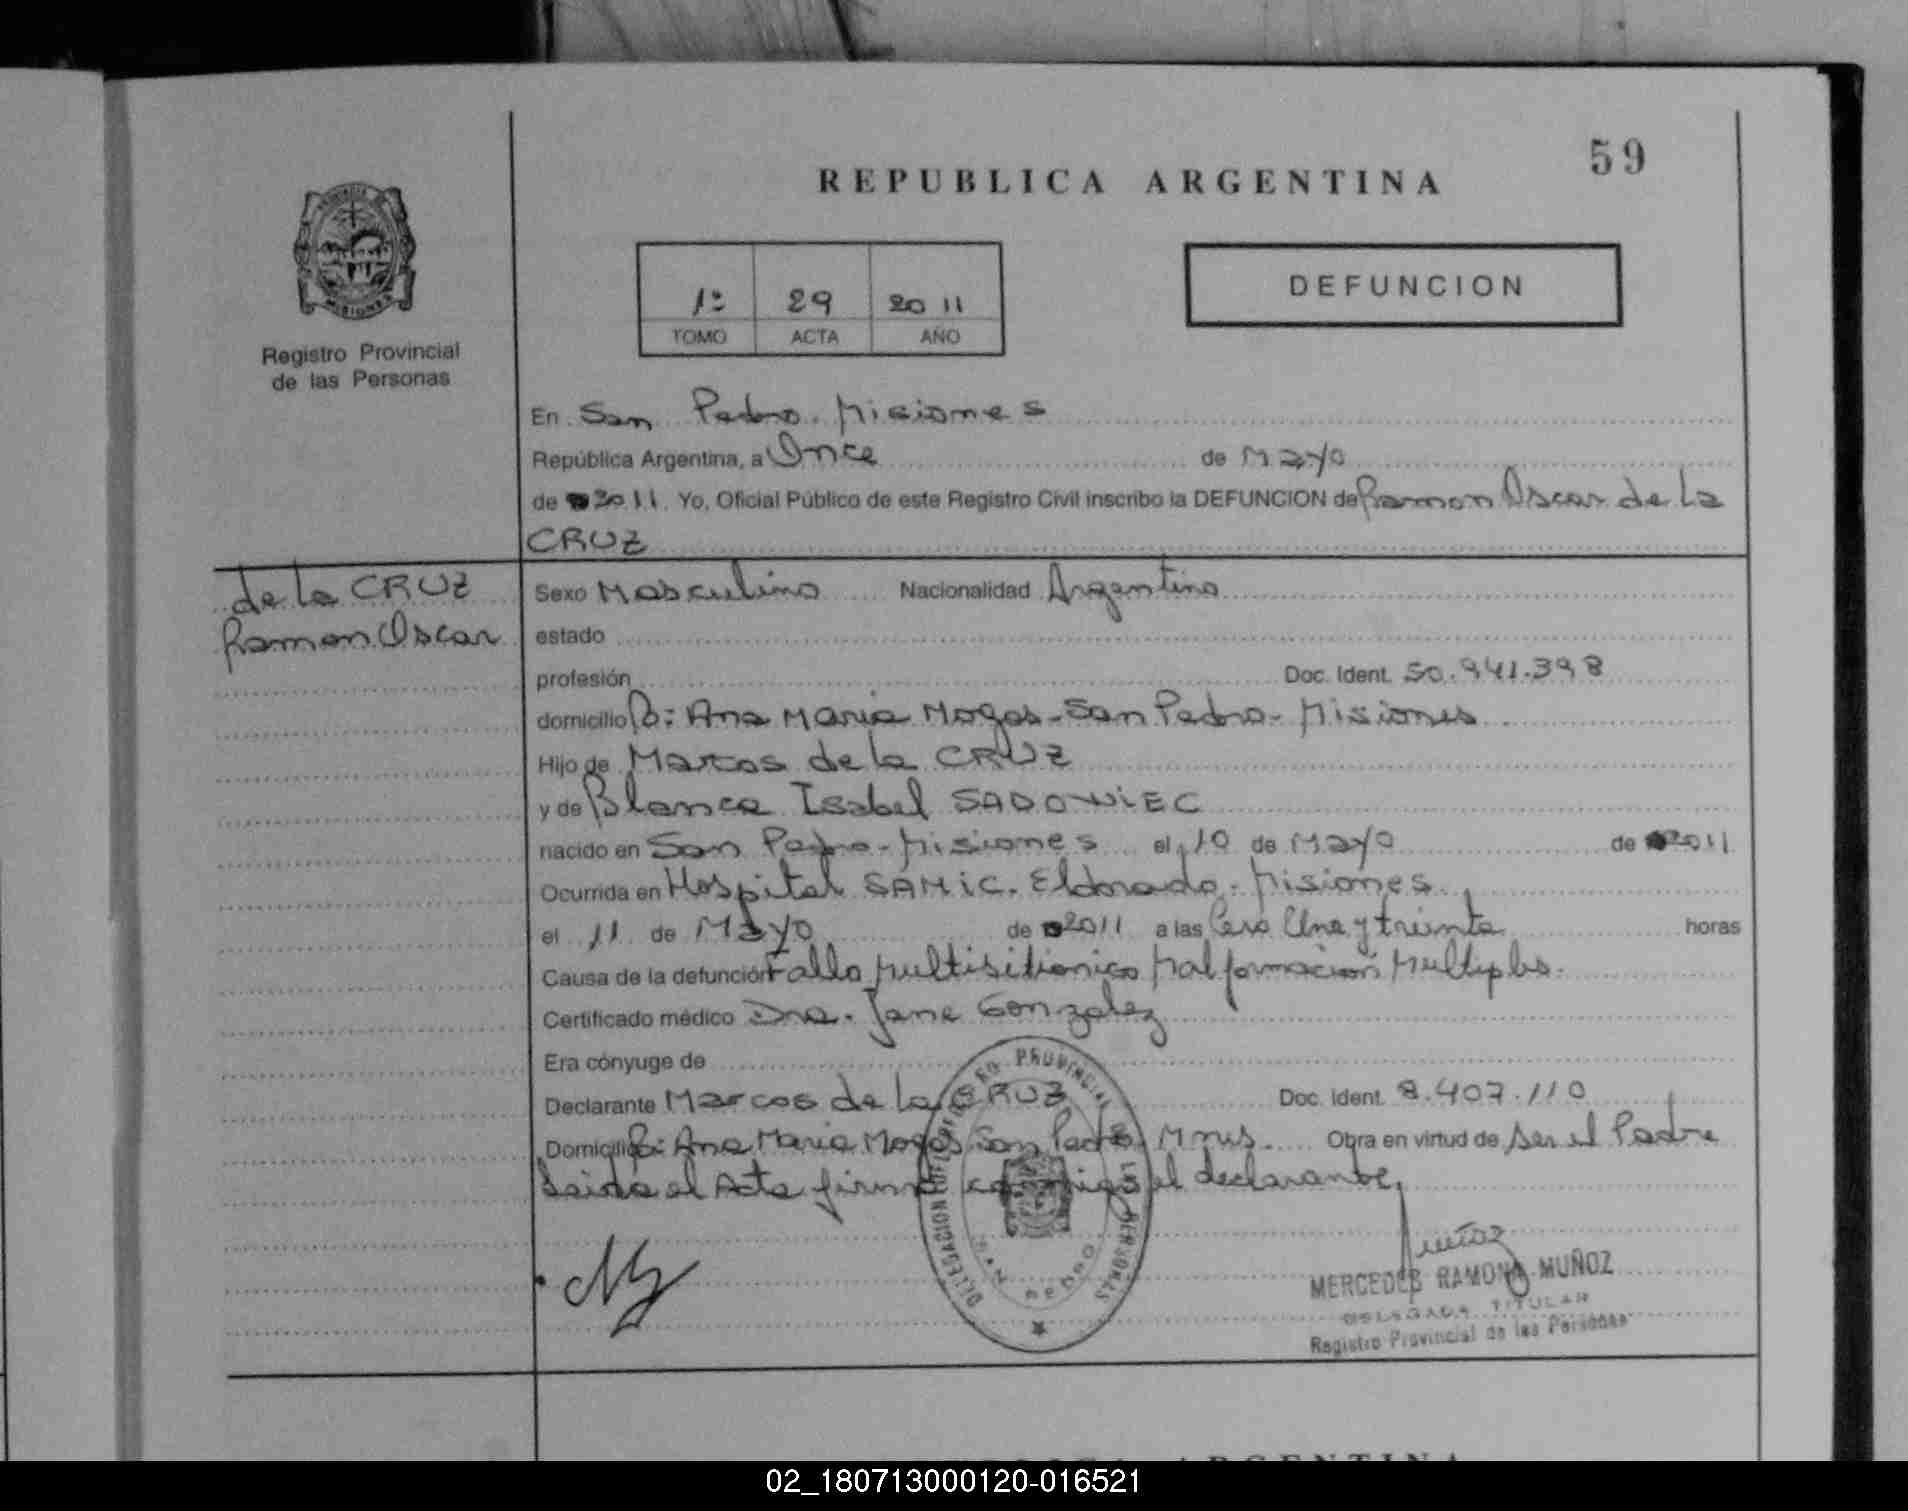 59
REPUBLICA ARGENTINA
PROVINCIA DE MISIONES
1º 29 2011
TOMO ACTA AÑO
DEFUNCION
Registro Provincial
de las Personas
En San Pedro. Misiones
República Argentina, a Once de Mayo
de 2011. Yo, Oficial Público de este Registro Civil inscribo la DEFUNCION de Ramon Oscar de La
CRUZ
de la CRUZ
Ramon Oscar
Sexo Masculino Nacionalidad Argentino
estado
profesión Doc. Ident. 50.941.398
domicilio Bº: Ana Maria Mogas - San Pedro - Misiones
Hijo de Marcos de la CRUZ
y de Blanca Isabel SADOWIEC
nacido en San Pedro - Misiones el 10 de Mayo de 2011
Ocurrida en Hospital SAMIC. Eldorado. Misiones
el 11 de Mayo de 2011 a las Cero Una y treinta horas
Causa de la defunción Fallo Multisitionico Malformacion Multiples.
Certificado médico Dra. Jane Gonzalez
Era cónyuge de
Declarante Marcos de la CRUZ Doc. Ident. 8.407.110
Domicilio Bº: Ana Maria Mogas San Pedro, Mnes. Obra en virtud de ser el Padre
Leida el Acta firma conmigo el declarante.
DELEGACION DEL REGISTRO PROVINCIAL DE LAS PERSONAS
SAN PEDRO
Muñoz
MERCEDES RAMONA MUÑOZ
DELEGADA TITULAR
Registro Provincial de las Personas
ARGENTINA
02_180713000120-016521